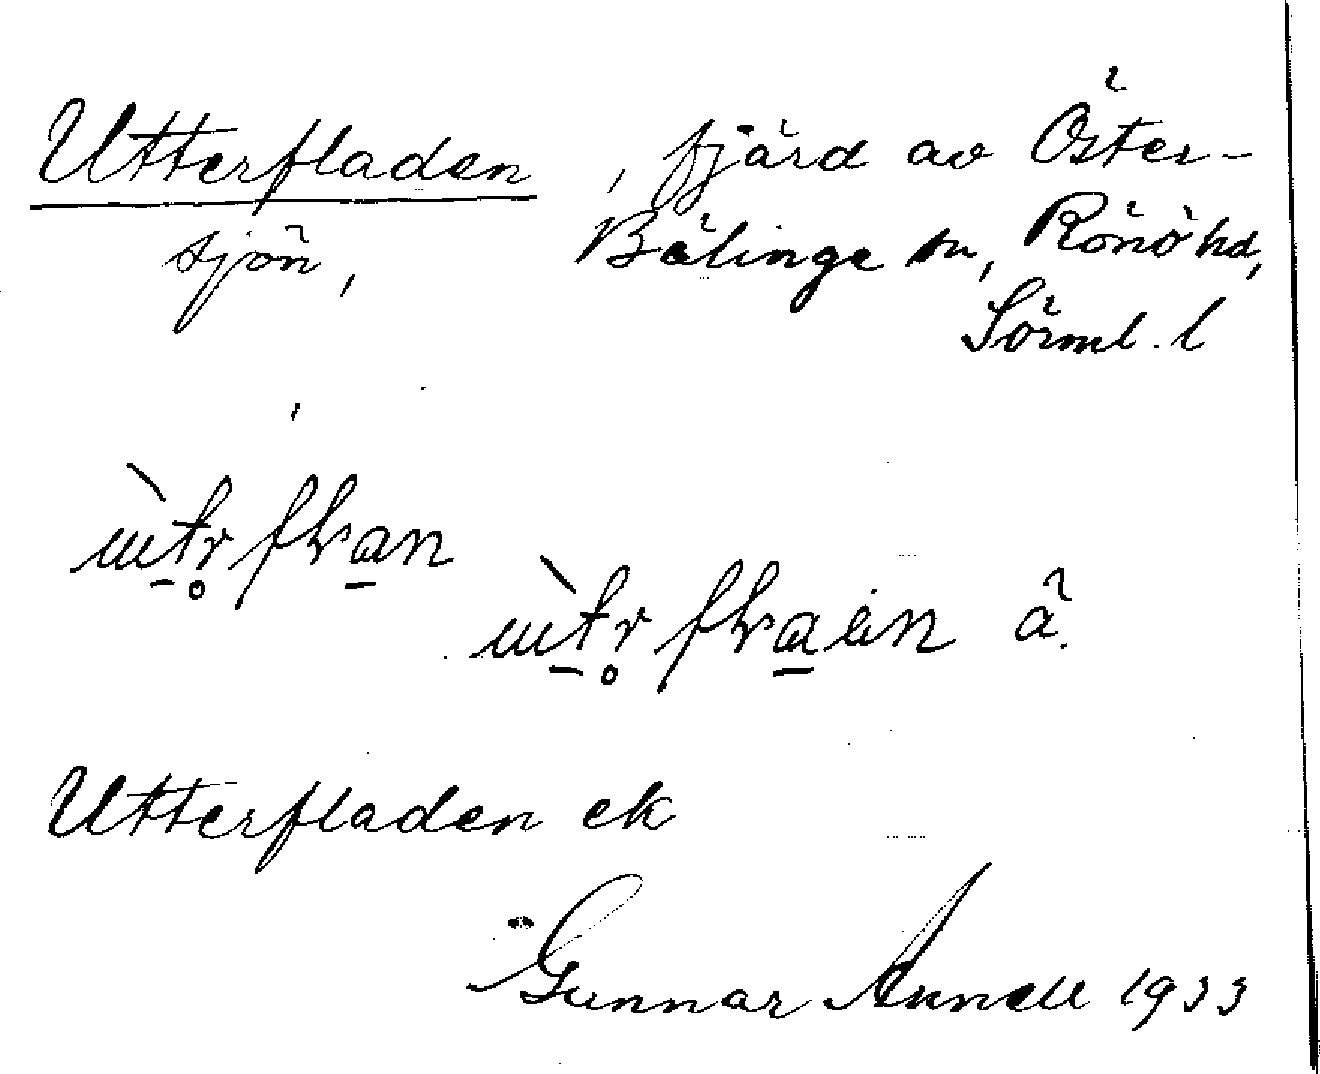 Utterfladen, fjärd av Öster-
sjön, Bälinge sn, Rönö hd,
Sörml. l
Utterfladen ek
Gunnar Annell 1933